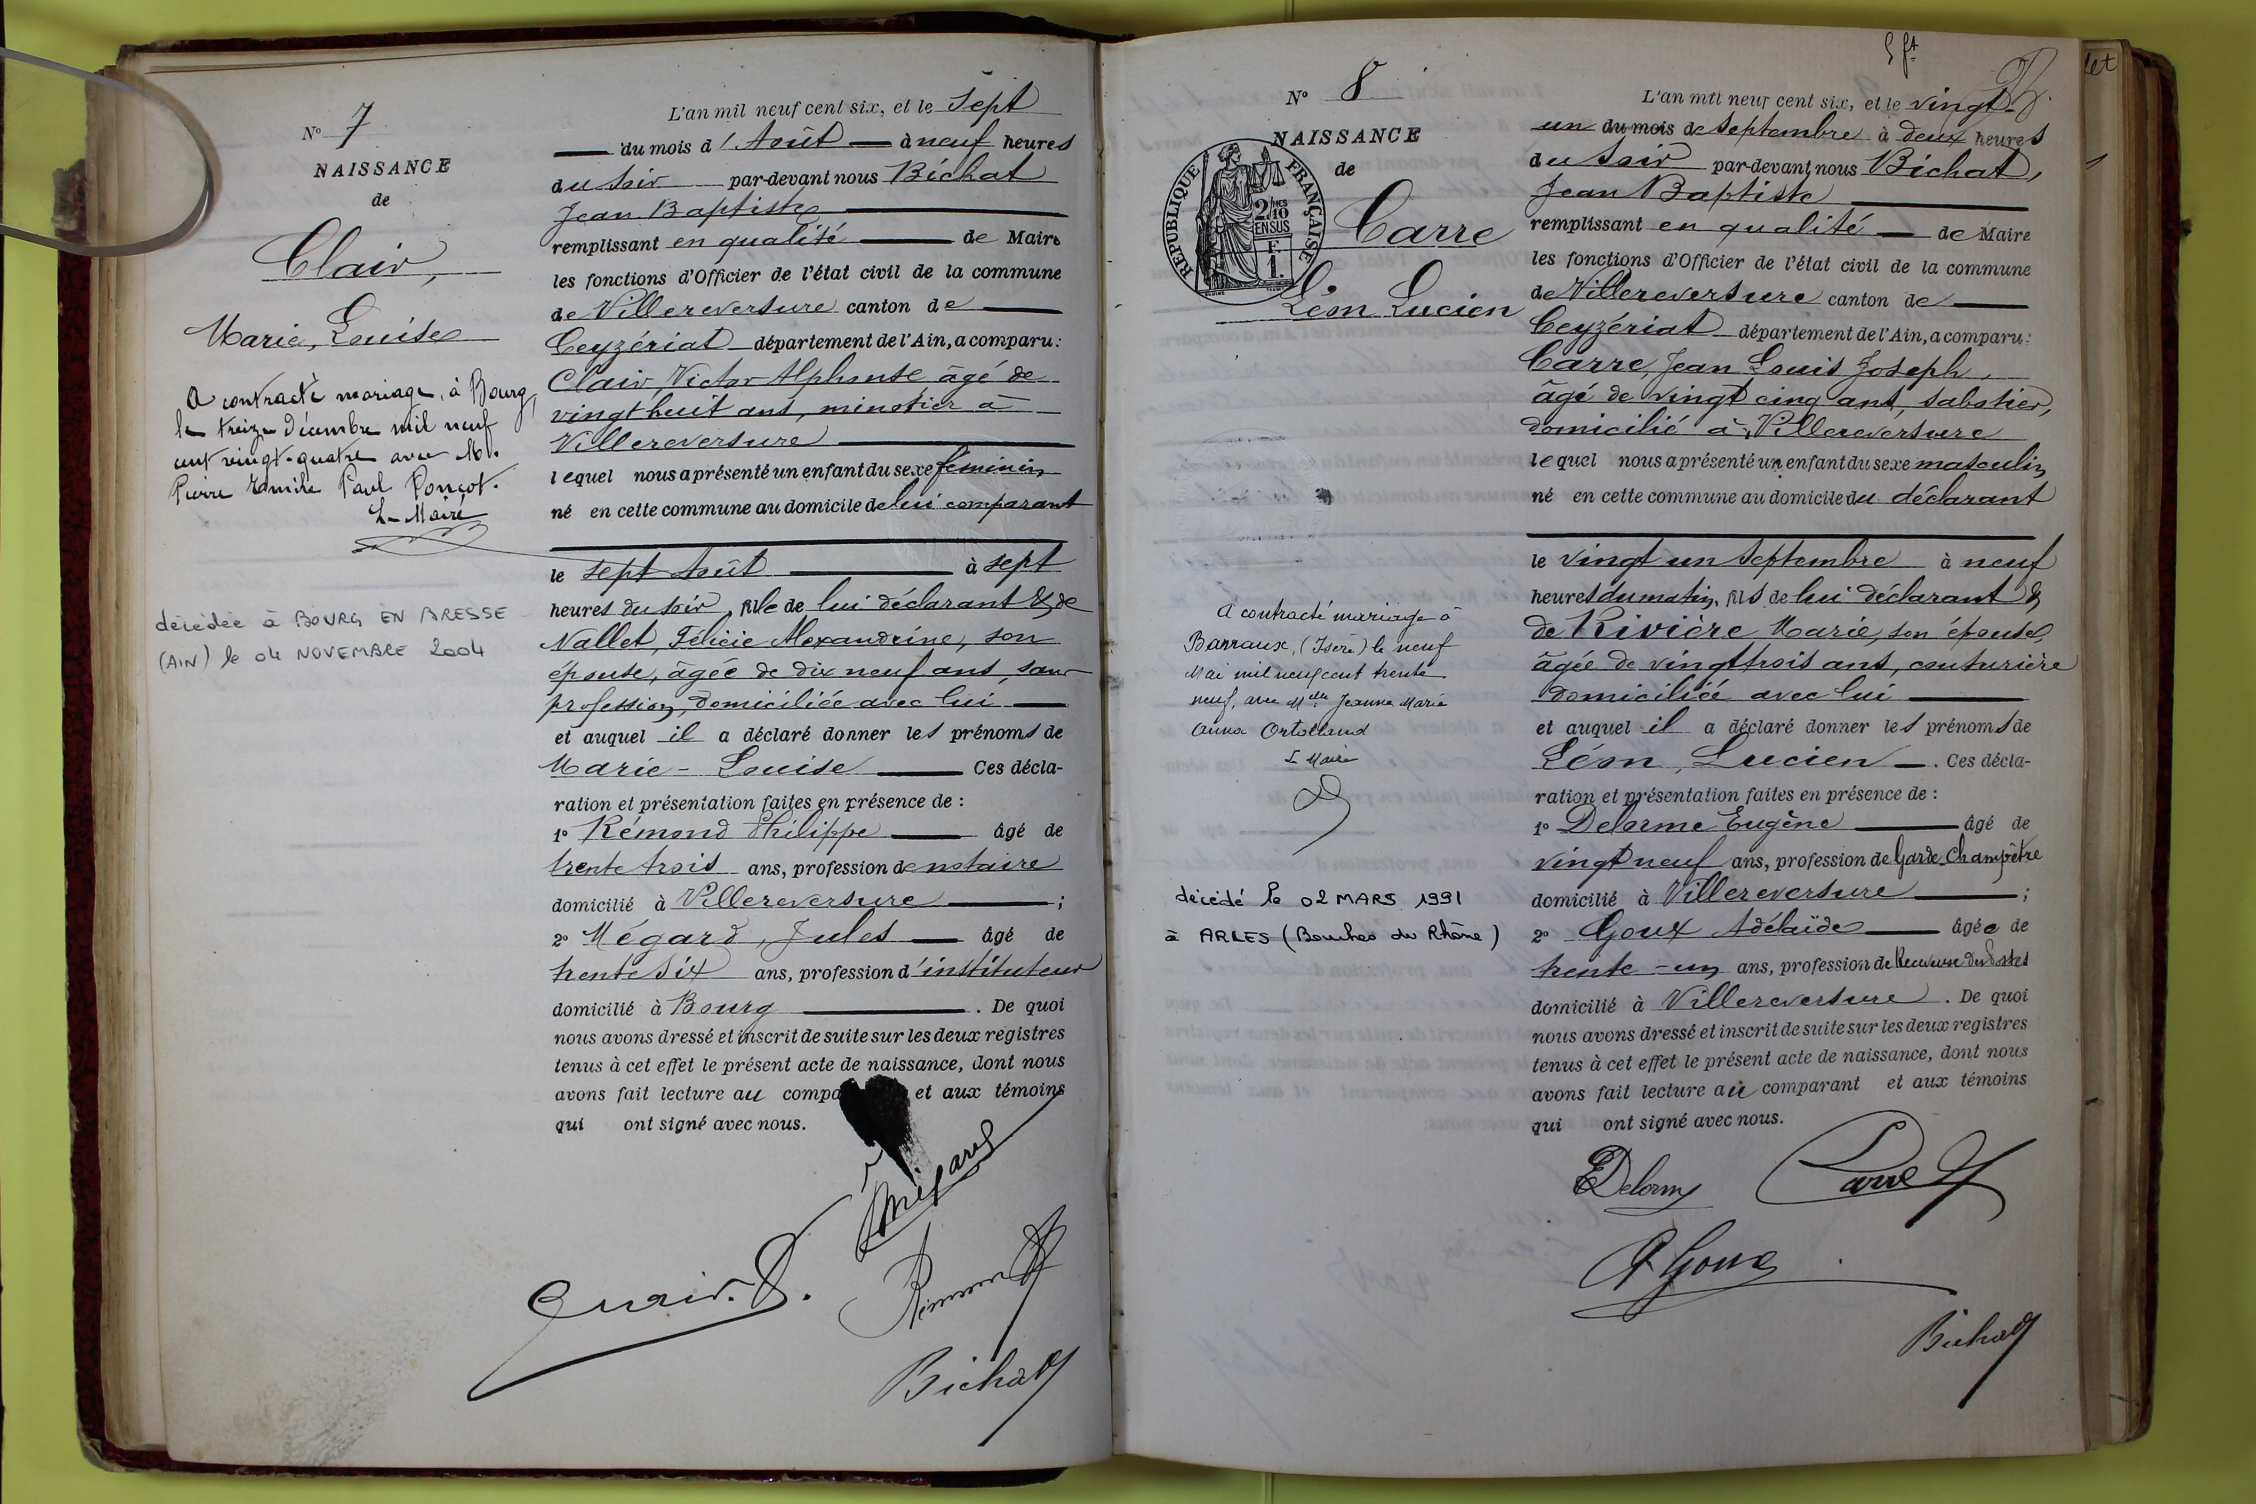 N° 7
NAISSANCE
de
Clair,
Marie, Louise
A contracté mariage, à Bourg,
le treize décembre mil neuf
cent vingt-quatre avec M.
Pierre Emile Paul Ponçot.
Le Maire
décédée à BOURG EN BRESSE
(AIN) le 04 NOVEMBRE 2004
L'an mil neuf cent six, et le sept
du mois d'Août à neuf heures
du soir par-devant nous Bichat
Jean Baptiste
remplissant en qualité de Maire
les fonctions d'Officier de l'état civil de la commune
de Villereversure canton de
Ceyzériat département de l'Ain, a comparu :
Clair, Victor Alphonse âgé de
vingt huit ans, minotier à
Villereversure
lequel nous a présenté un enfant du sexe féminin
né en cette commune au domicile de lui comparant
le sept Août à sept
heures du soir, fille de lui déclarant & de
Nallet, Félicie Alexandrine, son
épouse, âgée de dix neuf ans, sans
profession, domiciliée avec lui
et auquel il a déclaré donner les prénoms de
Marie - Louise Ces décla-
ration et présentation faites en présence de :
1° Rémond Philippe âgé de
trente trois ans, profession de notaire
domicilié à Villereversure ;
2° Mégard, Jules âgé de
trente six ans, profession d'instituteur
domicilié à Bourg . De quoi
nous avons dressé et inscrit de suite sur les deux registres
tenus à cet effet le présent acte de naissance, dont nous
avons fait lecture au compa et aux témoins
qui ont signé avec nous.
Mégard
Clair. V.
Rémond
Bichat
N° 8
NAISSANCE
de
RÉPUBLIQUE FRANÇAISE
2/10 MES
EN SUS
F.
1.
Carre
Léon Lucien
A contracté mariage à
Barraux, (Isère) le neuf
Mai mil neuf cent trente
neuf, avec Mlle Jeanne Marie
Anna Ortolland
Le Maire
décédé le 02 MARS 1991
à ARLES (Bouches du Rhône)
5 ft
L'an mil neuf cent six, et le vingt-
un du mois de septembre à deux heures
du soir par-devant nous Bichat,
Jean Baptiste
remplissant en qualité de Maire
les fonctions d'Officier de l'état civil de la commune
de Villereversure canton de
Ceyzériat département de l'Ain, a comparu :
Carre, Jean Louis Joseph,
âgé de vingt cinq ans, sabotier,
domicilié à Villereversure
lequel nous a présenté un enfant du sexe masculin
né en cette commune au domicile du déclarant
le vingt un septembre à neuf
heures du matin, fils de lui déclarant &
de Rivière Marie, son épouse,
âgée de vingt trois ans, couturière
domiciliée avec lui
et auquel il a déclaré donner les prénoms de
Léon, Lucien . Ces décla-
ration et présentation faites en présence de :
1° Delorme Eugène âgé de
vingt neuf ans, profession de Garde-Champêtre
domicilié à Villereversure ;
2° Goux Adélaïde âgée de
trente - un ans, profession de Receveuse des Postes
domicilié à Villereversure . De quoi
nous avons dressé et inscrit de suite sur les deux registres
tenus à cet effet le présent acte de naissance, dont nous
avons fait lecture au comparant et aux témoins
qui ont signé avec nous.
EDelorme Carre
A Goux
Bichat
let